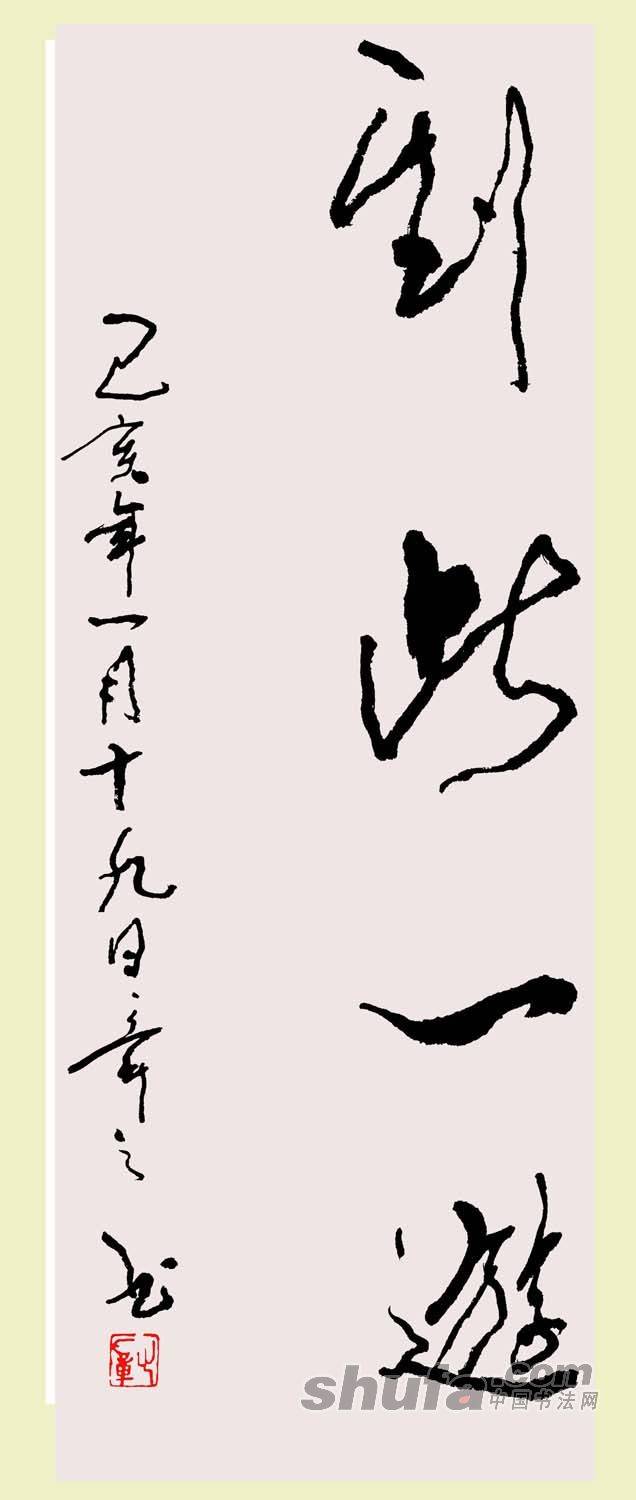 到此一遊
己亥年一月十九日章之
shufa.com
中国书法网